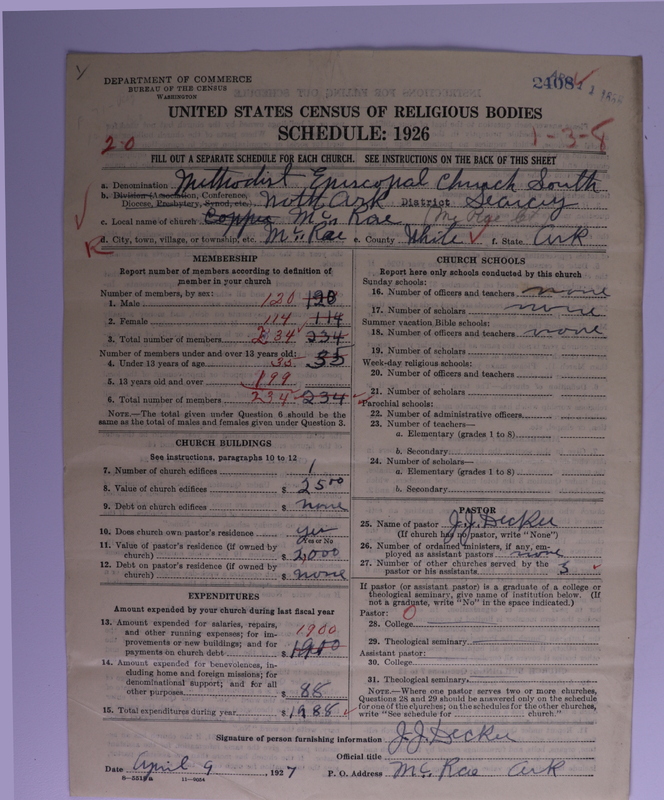 DEPARTMENT OF COMMERCE
BUREAU OF THE CENSUS
WASHINGTON
2408
UNITED STATES CENSUS OF RELIGIOUS BODIES
SCHEDULE: 1926
1-3-8
20
FILL OUT A SEPARATE SCHEDULE FOR EACH CHURCH. SEE INSTRUCTIONS ON THE BACK OF THIS SHEET
a. Denomination Methodist Episcopal Church South
b. Division (Association, Conference, Diocese, Presbytery, Synod, etc.) North Ark District Searcy
c. Local name of church McRae
d. City, town, village, or township, etc. McRae e. County White f. State Ark
MEMBERSHIP
Report number of members according to definition of
member in your church
Number of members, by sex:
1. Male 120 120
2. Female 114 114
3. Total number of members 234 234
Number of members under and over 13 years old:
4. Under 13 years of age 35 35
5. 13 years old and over 199
6. Total number of members 234 234
NOTE.—The total given under Question 6 should be the
same as the total of males and females given under Question 3.
CHURCH BUILDINGS
See instructions, paragraphs 10 to 12
7. Number of church edifices 1
8. Value of church edifices $ 2500
9. Debt on church edifices $ none
10. Does church own pastor's residence yes
Yes or No
11. Value of pastor's residence (if owned by
church) $ 2,000
12. Debt on pastor's residence (if owned by
church) $ none
EXPENDITURES
Amount expended by your church during last fiscal year
13. Amount expended for salaries, repairs,
and other running expenses; for im-
provements or new buildings; and for
payments on church debt 1900 $ 1900
14. Amount expended for benevolences, in-
cluding home and foreign missions; for
denominational support; and for all
other purposes $ 88
15. Total expenditures during year $ 1988
CHURCH SCHOOLS
Report here only schools conducted by this church
Sunday schools:
16. Number of officers and teachers none
17. Number of scholars none
Summer vacation Bible schools:
18. Number of officers and teachers none
19. Number of scholars
Week-day religious schools:
20. Number of officers and teachers
21. Number of scholars
Parochial schools:
22. Number of administrative officers
23. Number of teachers—
a. Elementary (grades 1 to 8)
b. Secondary
24. Number of scholars—
a. Elementary (grades 1 to 8)
b. Secondary
PASTOR
25. Name of pastor J.J. Decker
(If church has no pastor, write "None")
26. Number of ordained ministers, if any, em-
ployed as assistant pastors none
27. Number of other churches served by the
pastor or his assistants 3
If pastor (or assistant pastor) is a graduate of a college or
theological seminary, give name of institution below. (If
not a graduate, write "No" in the space indicated.)
Pastor: 0
28. College
29. Theological seminary
Assistant pastor:
30. College
31. Theological seminary
NOTE.—Where one pastor serves two or more churches,
Questions 28 and 29 should be answered only on the schedule
for one of the churches; on the schedules for the other churches,
write "See schedule for church."
Signature of person furnishing information J.J. Decker
Official title
Date April 9, 1927 P. O. Address McRae Ark
11—9054